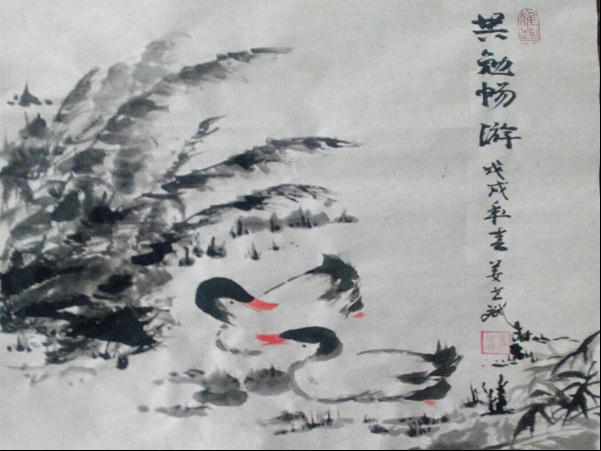 共勉畅游
戊戌秋 姜 斌